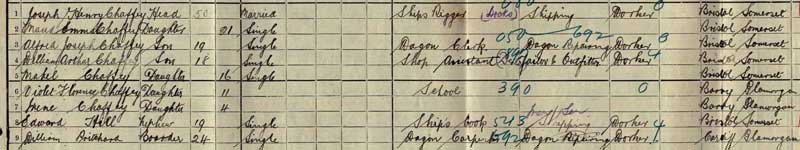 1 Joseph Henry Chaffey Head 50 Married Ships Rigger (Docks) Shipping Worker 0 Bristol Somerset
2 Maud Emma Chaffey Daughter 21 Single Bristol Somerset
3 Alfred Joseph Chaffey Son 19 Single Wagon Clerk 050 692 Wagon Repairing Worker 3 Bristol Somerset
4 William Arthur Chaffey Son 18 Single Shop Assistant Tailor & Outfitter Worker 4 Bristol Somerset
5 Mabel Chaffey Daughter 16 Single Bristol Somerset
6 Violet Florence Chaffey Daughter 11 School 390 0 Barry Glamorgan
7 Irene Chaffey Daughter 4 Barry Glamorgan
8 Edward Hill Nephew 19 Single Ships Cook 543 Shipping Worker 4 Bristol Somerset
9 William Pritchard Boarder 24 Single Wagon Carpenter 692 Wagon Repairing Worker 1 Cardiff Glamorgan